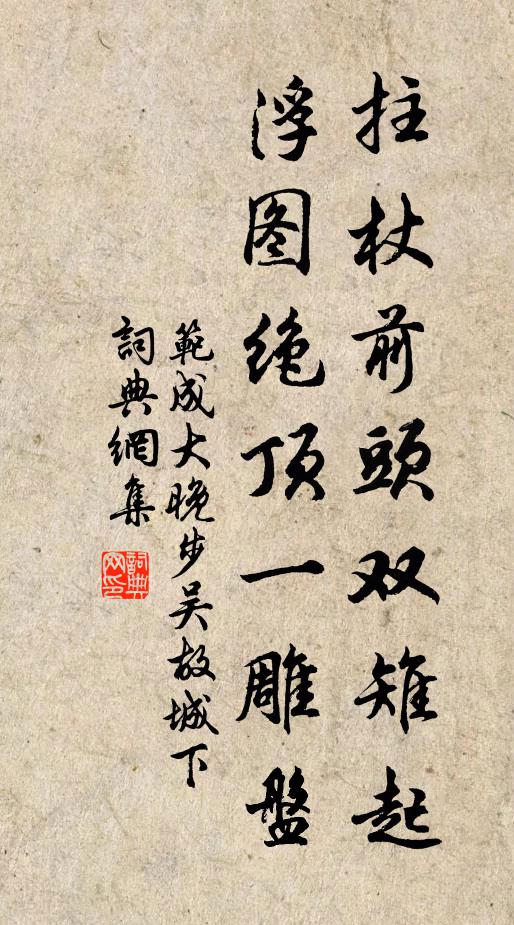 拄杖前頭双雉起
浮图绝顶一雕盤
範成大晚步吴故城下
詞典網集
詞典网印